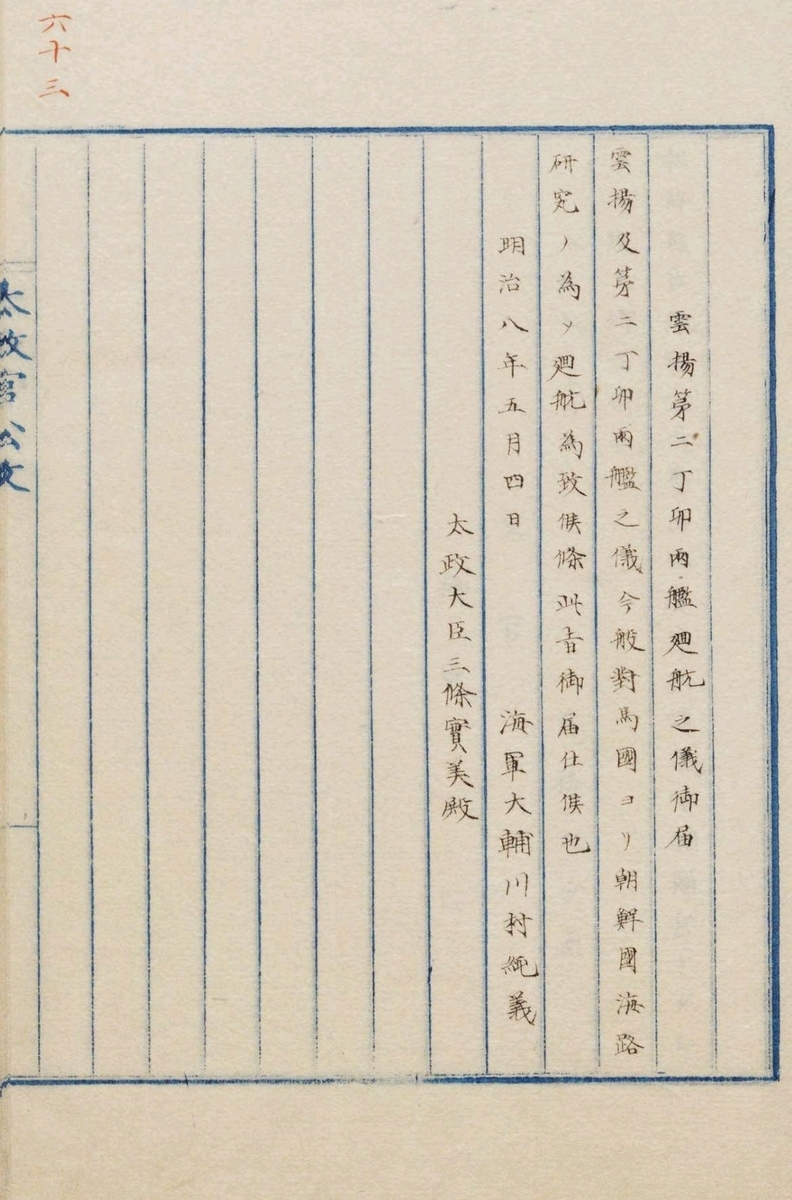 六十三
雲揚第二丁卯兩艦廻航之儀御届
雲揚及第二丁卯兩艦之儀今般對馬國ヨリ朝鮮國海路
研究ノ為メ廻航為致候條此旨御届仕候也
明治八年五月四日 海軍大輔川村純義
太政大臣三條實美殿
太政官公文